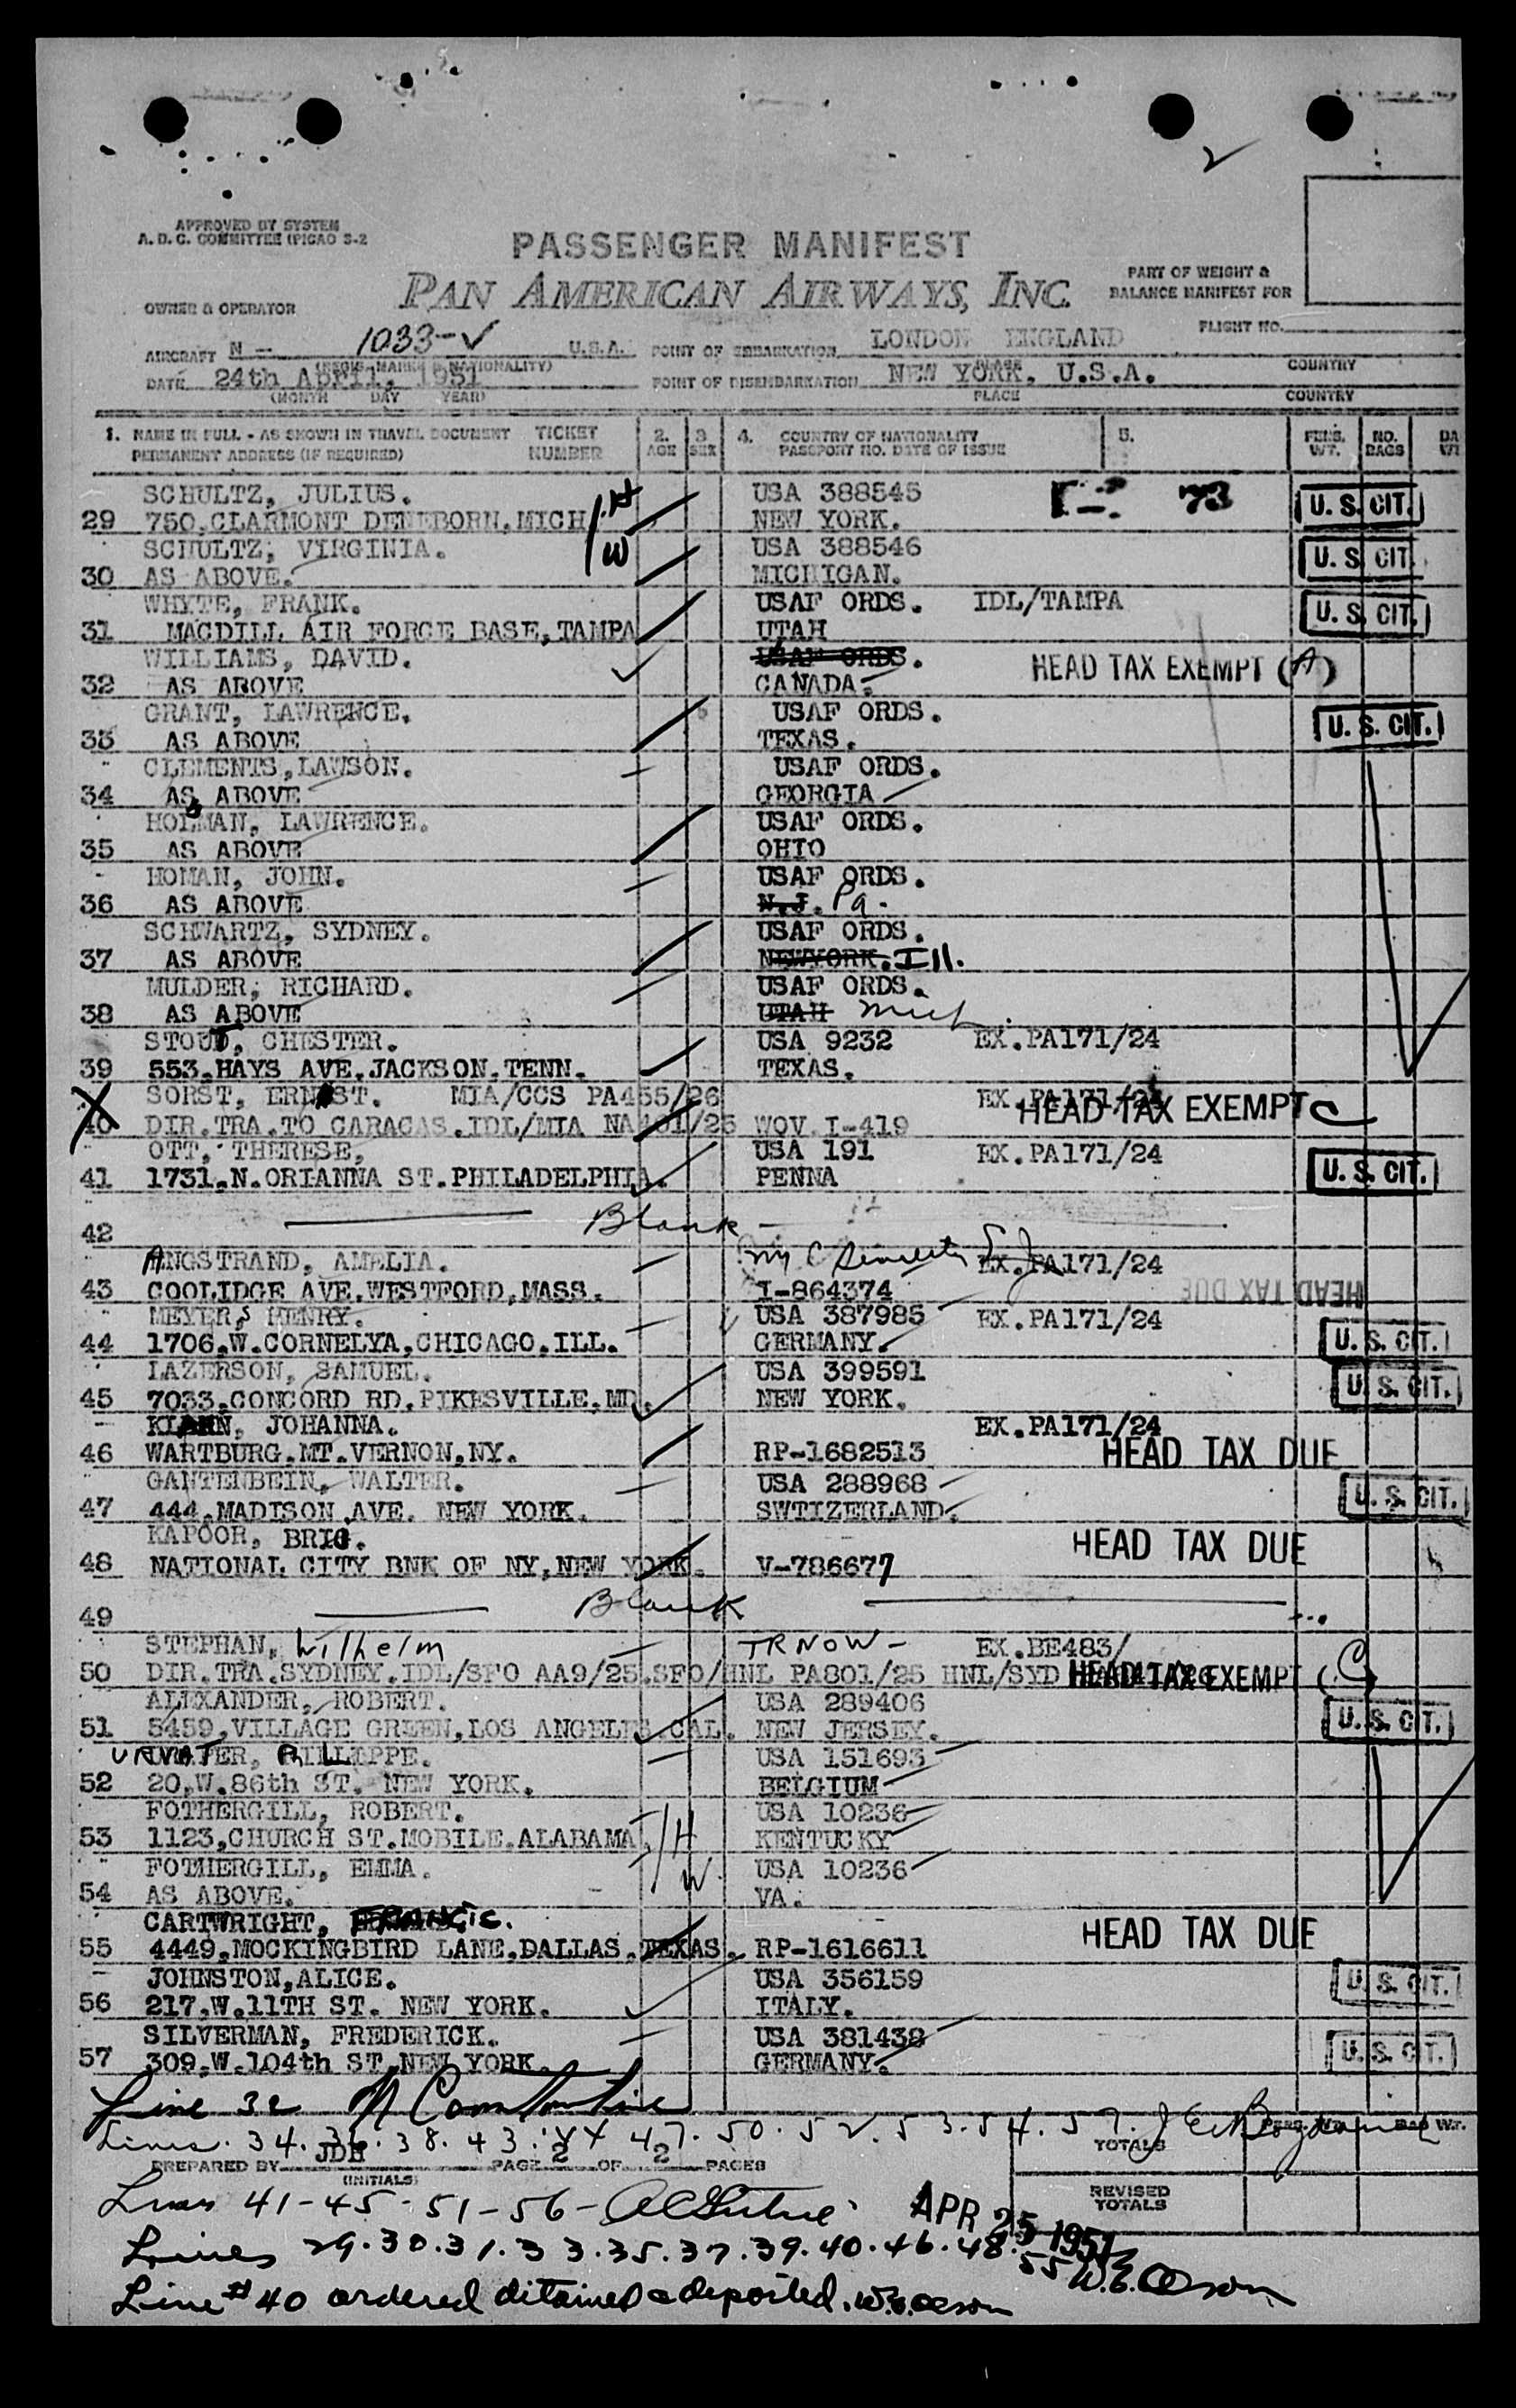 APPROVED BY SYSTEM
A. D. C. COMMITTEE (PICAO S-2
PASSENGER MANIFEST
PAN AMERICAN AIRWAYS, INC.
PART OF WEIGHT &
BALANCE MANIFEST FOR
OWNER & OPERATOR
FLIGHT NO.
AIRCRAFT N - 1033-V U.S.A. POINT OF EMBARKATION LONDON ENGLAND
(REGIS. MARKS & NATIONALITY) PLACE COUNTRY
DATE 24th April, 1951 POINT OF DISEMBARKATION NEW YORK, U.S.A.
(MONTH DAY YEAR) PLACE COUNTRY
1. NAME IN FULL - AS SHOWN IN TRAVEL DOCUMENT TICKET 2. 3 4. COUNTRY OF NATIONALITY 5. PERS. NO. DA
PERMANENT ADDRESS (IF REQUIRED) NUMBER AGE SEX PASSPORT NO. DATE OF ISSUE WT. BAGS WT
SCHULTZ, JULIUS. H USA 388545 73 U. S. CIT.
29 750.CLARMONT DENEBORN.MICH NEW YORK.
SCHULTZ, VIRGINIA. W USA 388546 U. S. CIT.
30 AS ABOVE. MICHIGAN.
WHYTE, FRANK. USAF ORDS. IDL/TAMPA U. S. CIT.
31 MACDILL AIR FORCE BASE,TAMPA UTAH
WILLIAMS, DAVID. USAF ORDS. HEAD TAX EXEMPT (A)
32 AS ABOVE CANADA.
GRANT, LAWRENCE. USAF ORDS. U. S. CIT.
33 AS ABOVE TEXAS.
CLEMENTS,LAWSON. USAF ORDS.
34 AS ABOVE GEORGIA
HOLMAN, LAWRENCE. USAF ORDS.
35 AS ABOVE OHIO
HOMAN, JOHN. USAF ORDS.
36 AS ABOVE N.J. Pa.
SCHWARTZ, SYDNEY. USAF ORDS.
37 AS ABOVE NEWYORK. Ill.
MULDER, RICHARD. USAF ORDS.
38 AS ABOVE UTAH Mich.
STOUT, CHESTER. USA 9232 EX.PA171/24
39 553.HAYS AVE.JACKSON.TENN. TEXAS.
SORST, ERNST. MIA/CCS PA455/26 EX.PA171/24
HEAD TAX EXEMPT C
40 DIR.TRA.TO CARACAS.IDL/MIA NA401/25 WOV I-419
OTT, THERESE, USA 191 EX.PA171/24 U. S. CIT.
41 1731.N.ORIANNA ST.PHILADELPHIA. PENNA
42 Blank
ANGSTRAND, AMELIA. EX.PA171/24
43 COOLIDGE AVE.WESTFORD,MASS. I-864374 HEAD TAX DUE
MEYERS HENRY. USA 387985 EX.PA171/24
44 1706.W.CORNELYA,CHICAGO.ILL. GERMANY. U. S. CIT.
LAZERSON, SAMUEL. USA 399591 U. S. CIT.
45 7033.CONCORD RD.PIKESVILLE.MD. NEW YORK.
JOHANNA. EX.PA171/24
46 WARTBURG.MT.VERNON,NY. RP-1682513 HEAD TAX DUE
GANTENBEIN, WALTER. USA 288968 U. S. CIT.
47 444.MADISON AVE. NEW YORK. SWTIZERLAND.
KAPOOR, BRIG. HEAD TAX DUE
48 NATIONAL CITY BNK OF NY,NEW YORK. V-786677
49 Blank
STEPHAN, Wilhelm TRNOW- EX.BE483/
50 DIR.TRA.SYDNEY.IDL/SFO AA9/25.SFO/HNL PA801/25 HNL/SYD HEAD TAX EXEMPT (C)
ALEXANDER, ROBERT. USA 289406
51 5459.VILLAGE GREEN,LOS ANGELES.CAL. NEW JERSEY. U. S. CIT.
USA 151693
52 20.W.86th ST. NEW YORK. BELGIUM
FOTHERGILL, ROBERT. USA 10236
53 1123.CHURCH ST.MOBILE.ALABAMA. H KENTUCKY
FOTHERGILL, EMMA. W. USA 10236
54 AS ABOVE. VA.
CARTWRIGHT, HEAD TAX DUE
55 4449.MOCKINGBIRD LANE.DALLAS.TEXAS. RP-1616611
JOHNSTON,ALICE. USA 356159 U. S. CIT.
56 217.W.11TH ST. NEW YORK. ITALY.
SILVERMAN, FREDERICK. USA 381438
57 309.W.104th ST.NEW YORK. GERMANY. U. S. CIT.
Line 32
Lines. 34. 36. 38. 43. 44 47. 50. 52. 53. 54. 57.
PREPARED BY JDH PAGE 2 OF 2 PAGES TOTALS
(INITIALS)
Lines 41-45-51-56- APR 25 1951 REVISED TOTALS
Lines 29.30.31.33.35.37.39.40.46.48.55 W.E. Olson
Line #40 ordered detained & deported. W.E. Olson